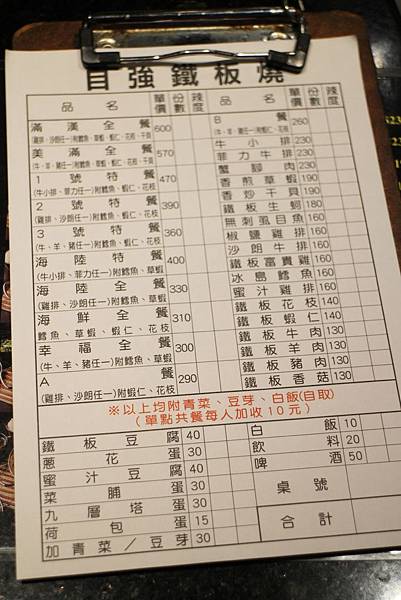 自強鐵板燒
品名 單價 份數 辣度
滿漢全餐 600
(雞排、沙朗任一)附鱈魚、草蝦、蝦仁、花枝、干貝
美滿全餐 570
(牛、羊、豬任一)附鱈魚、草蝦、蝦仁、花枝
1號特餐 470
(牛小排、菲力任一)附鱈魚、蝦仁、花枝
2號特餐 390
(雞排、沙朗任一)附鱈魚、蝦仁、花枝
3號特餐 360
(牛、羊、豬任一)附鱈魚、蝦仁、花枝
海陸特餐 400
(牛小排、菲力任一)附鱈魚、草蝦
海陸全餐 330
(雞排、沙朗任一)附鱈魚、草蝦
海鮮全餐 310
鱈魚、草蝦、蝦仁、花枝
幸福全餐 300
(牛、羊、豬任一)附鱈魚、草蝦
A餐 290
(雞排、沙朗任一)附蝦仁、花枝
品名 單價 份數 辣度
B餐 260
(牛、羊、豬任一)附蝦仁、花枝
牛小排 230
菲力牛排 230
蟹腳肉 230
香煎草蝦 190
香炒干貝 190
鐵板生蚵 180
無刺虱目魚 160
椒鹽雞排 160
沙朗牛排 160
鐵板富貴雞 160
冰島鱈魚 160
蜜汁雞排 160
鐵板花枝 140
鐵板蝦仁 140
鐵板牛肉 130
鐵板羊肉 130
鐵板豬肉 130
鐵板香菇 130
※以上均附青菜、豆芽、白飯(自取)
(單點共餐每人加收10元)
鐵板豆腐 40
蔥花蛋 30
蜜汁豆腐 40
菜脯蛋 30
九層塔蛋 30
荷包蛋 15
加青菜/豆芽 30
白飯 10
飲料 20
啤酒 50
桌號
合計